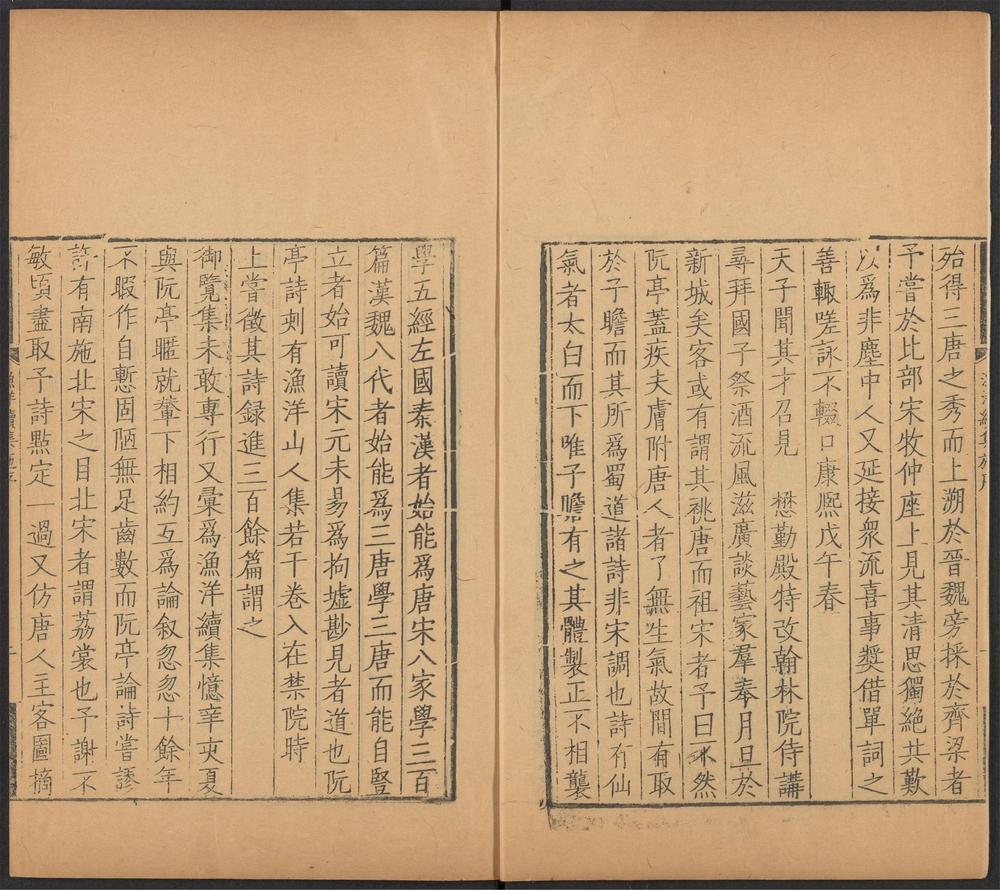 殆得三唐之秀而上溯於晉魏旁採於齊梁者
予嘗於比部宋牧仲座上見其清思獨絶共歎
以爲非塵中人又延接衆流喜事奬借單詞之
善輙嗟詠不輟口康熈戊午春
天子聞其才召見 懋勤殿特改翰林院侍講
尋拜國子祭酒流風滋廣談藝家羣奉月旦於
新城矣客或有謂其祧唐而祖宋者予曰不然
阮亭蓋疾夫膚附唐人者了無生氣故間有取
於子瞻而其所爲蜀道諸詩非宋調也詩有仙
氣者太白而下唯子瞻有之其體製正不相襲
學五經左國秦漢者始能爲唐宋八家學三百
篇漢魏八代者始能爲三唐學三唐而能自豎
立者始可讀宋元未易爲拘墟尠見者道也阮
亭詩刻有漁洋山人集若干卷入在禁院時
上嘗徵其詩録進三百餘篇謂之
御覽集未敢専行又彙爲漁洋續集憶辛亥夏
與阮亭暱就輦下相約互爲論叙忽忽十餘年
不暇作自慙固陋無足齒數而阮亭論詩嘗謬
許有南施北宋之目北宋者謂荔裳也予謝不
敏頃盡取予詩點定一過又仿唐人主客圖摘
漁洋續集施序